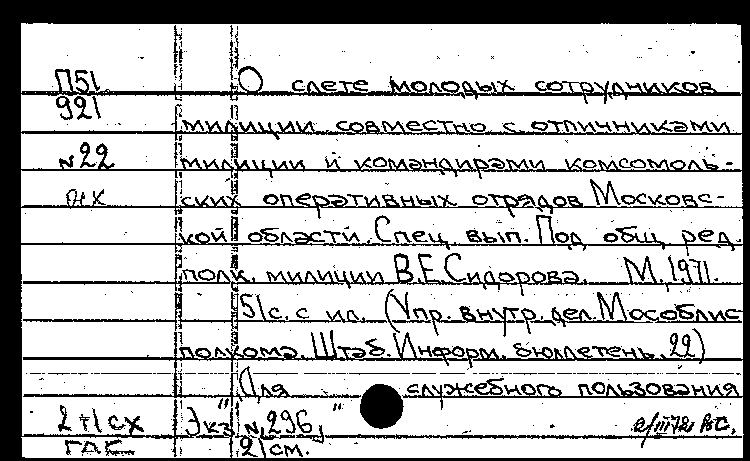 П51 О слете молодых сотрудников
921
милиции совместно с отличниками
№22 милиции и командирами комсомоль-
ских оперативных отрядов Московс-
кой области. Спец. вып. Под общ. ред.
полк. милиции В.Е. Сидорова. М., 1971.
51с. с ил. (Упр. внутр. дел. Мособлис
полкома. Штаб. Информ. бюллетень. 22)
Для служебного пользования
2+1 сх "Экз. № 296"
21см.